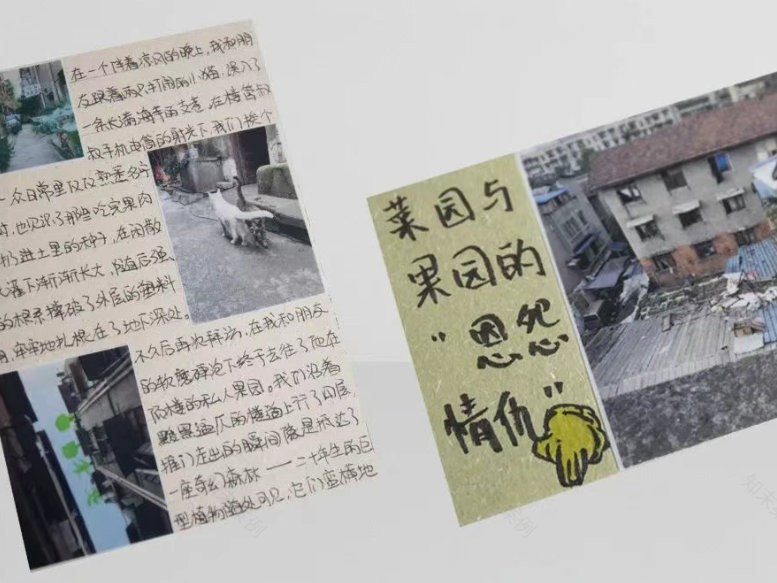 在一个伴着凉风的晚上,我和朋
友跟着两只打闹的小猫,误入了
一条长满海芋的支巷。在楼管叔
叔手机电筒的射光下,我们挨个
众日常里仅仅熟悉名字
时,也见识了那些吃完果肉
扔进土里的种子,在闲散
灌下渐渐长大,随后强
的根系撑破了外层的塑料
牢牢地扎根在了地下深处。
不久后再次拜访,在我和朋友
的软磨硬泡下终于去往了他在
顶楼的私人果园。我们沿着
黝黑逼仄的楼道上行了四层
推门走出的瞬间像是抵达了
一座奇幻森林——二十年生的巨
型植物随处可见,它们蛮横地
菜园与
果园的
“恩怨
情仇”